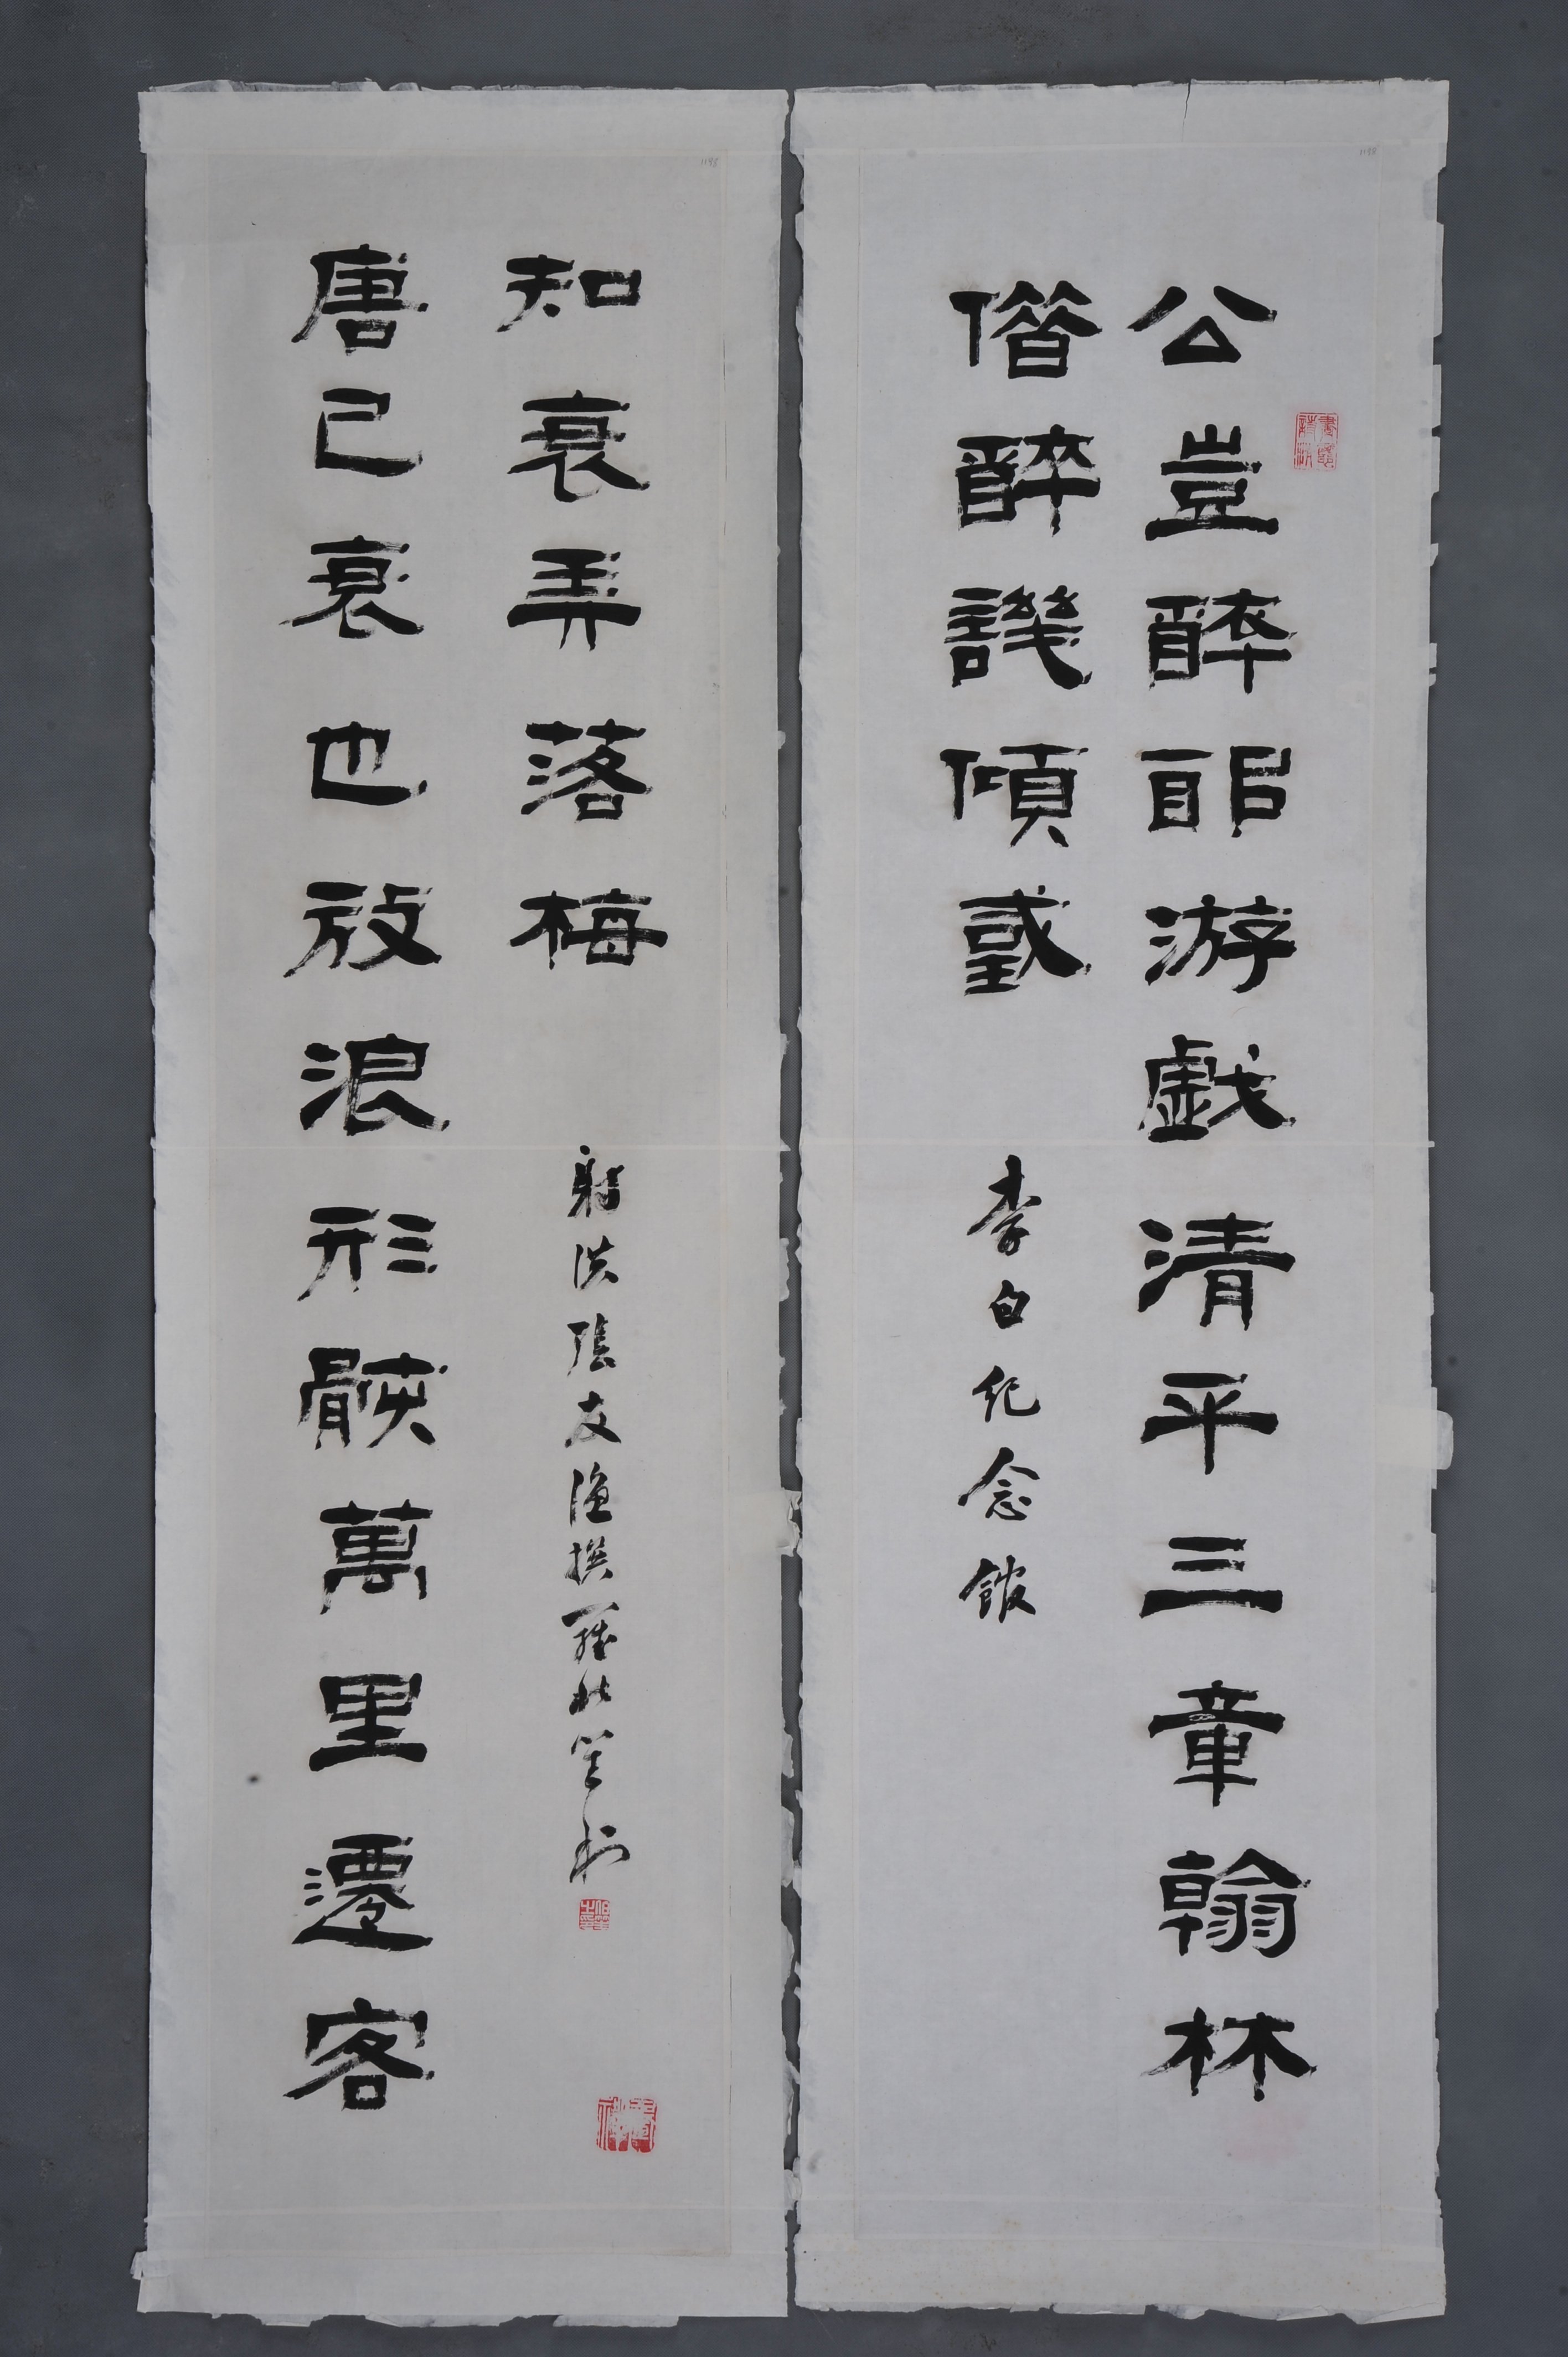 公豈醉耶游戲清平三章翰林
借醉譏傾國
李白纪念館
唐已衰也放浪形骸萬里遷客
知衰弄落梅
射洪 友漁撰羅